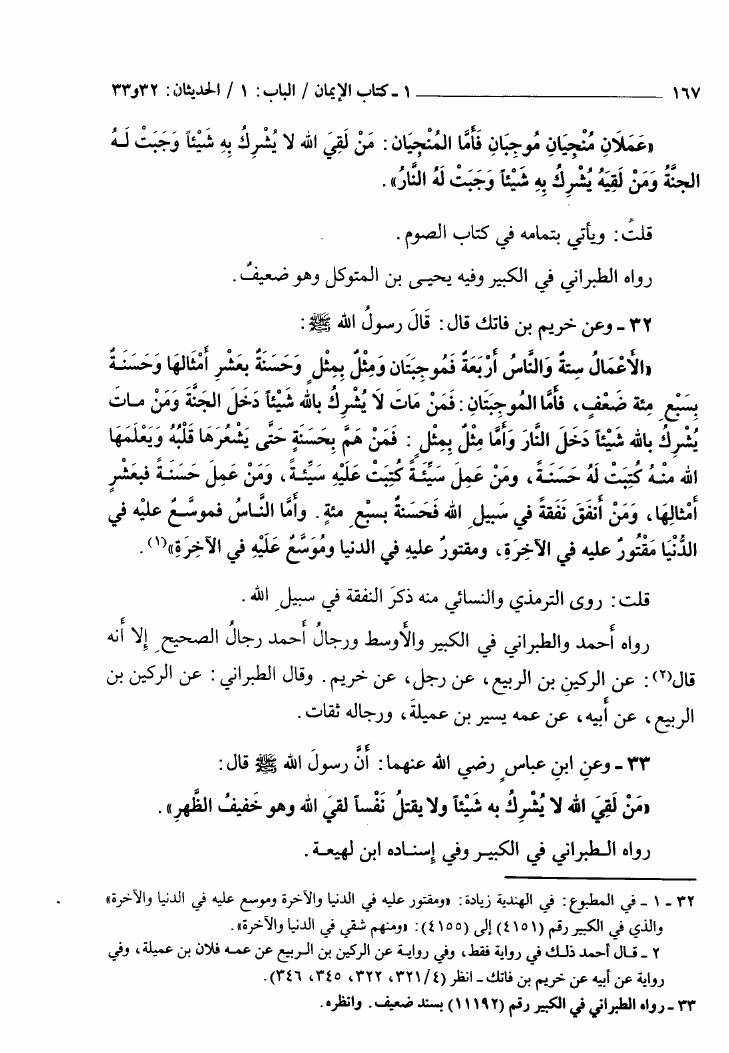 ١٦٧ ــــــــــــــــــــــــــــــــــــــــ ١ - كتاب الإيمان / الباب: ١ / الحديثان: ٣٢و٣٣
«عَمَلَانِ مُنْجِيَانِ مُوجِبَانِ فَأَمَّا المُنْجِيَان: مَنْ لَقِيَ الله لا يُشْرِكُ بِهِ شَيْئاً وَجَبَتْ لَـهُ
الجنَّةُ وَمَنْ لَقِيَهُ يُشْرِكُ بِهِ شَيْئاً وَجَبَتْ لَهُ النَّارُ».
قلتُ: ويأتي بتمامه في كتاب الصوم.
رواه الطبراني في الكبير وفيه يحيـى بن المتوكل وهو ضعيفٌ.
٣٢ - وعن خريم بن فاتك قال: قَالَ رسولُ الله ﷺ:
«الأَعْمَالُ سِتةٌ وَالنَّاسُ أَرْبَعَةٌ فَمُوجِبَتَان وَمِثْلٌ بِمِثْلٍ وَحَسَنَةٌ بعَشْرِ أَمْثَالِهَا وَحَسَنَـةٌ
بِسَبْعِ مئة ضَعْفٍ، فَأَمَّا المُوجِبَتَانِ: فَمَنْ مَاتَ لَا يُشْرِكُ بالله شَيْئاً دَخَلَ الجَنَّةَ وَمَنْ مـاتَ
يُشْرِكُ بالله شَيْئاً دَخَلَ النَّارَ وَأَمَّا مِثْلٌ بِمِثْلٍ: فَمَنْ هَمَّ بِحَسَنَةٍ حَتَّى يَشْعُرَهَا قَلْبُهُ وَيَعْلَمَهَا
الله منْـهُ كُتِبَتْ لَهُ حَسَنَـةً، ومَنْ عَمِلَ سَيِّئَـةً كُتِبَتْ عَلَيْهِ سَيِّئـةً، وَمَنْ عَمِلَ حَسَنَـةً فَبعَشْرِ
أَمْثالِهَا، وَمَنْ أَنفَقَ نَفَقَةً في سَبيلِ الله فَحَسَنَةٌ بسَبْعِ مئةٍ. وأَمَّا النَّـاسُ فموسَّـعٌ عليه في
الدُّنْيَا مَقْتُورٌ عليه في الآخِرَةِ، ومقتورٌ عليهِ في الدنيا ومُوَسَّعٌ عَلَيْهِ في الآخِرَةِ»(١).
قلت: روى الترمذي والنسائي منه ذكرَ النفقة في سبيلِ الله.
رواه أحمد والطبراني في الكبير والأوسط ورجالُ أحمد رجالُ الصحيحِ إلا أنه
قال(٢): عن الركينِ بن الربيع، عن رجل، عن خريم. وقال الطبراني: عن الركين بن
الربيع، عن أبيه، عن عمه يسير بن عميلةَ، ورجاله ثقات.
٣٣ - وعنِ ابنِ عباسٍ رضي الله عنهما: أَنَّ رسولَ الله ﷺ قال:
«مَنْ لَقِيَ الله لا يُشْرِكُ به شَيْئاً ولا يقتلُ نَفْساً لقيَ الله وهو خَفيفُ الظَّهرِ».
رواه الـطبراني في الكبيـر وفي إسنـاده ابن لهيعـة.
٣٢ - ١ - في المطبوع: في الهندية زيادة: «ومقتور عليه في الدنيا والآخرة وموسع عليه في الدنيا والآخرة»
والذي في الكبير رقم (٤١٥١) إلى (٤١٥٥): «ومنهم شقي في الدنيا والآخرة».
٢ - قـال أحمد ذلـك في رواية فقط، وفي روايـة عن الركين بن الـربيع عن عمـه فلان بن عميلة، وفي
رواية عن أبيه عن خريم بن فاتك - انظر (٣٢١/٤، ٣٢٢، ٣٤٥، ٣٤٦).
٣٣ - رواه الطبراني في الكبير رقم (١١١٩٢) بسند ضعيف. وانظره.